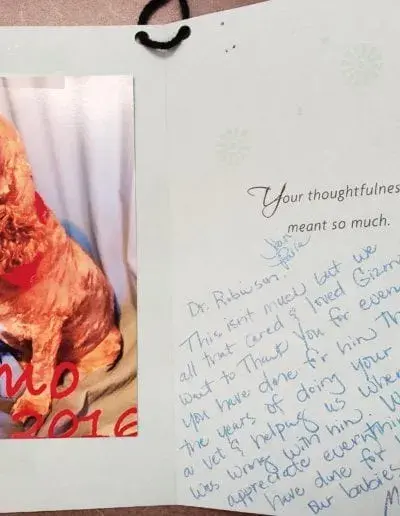 mo
2016
Your thoughtfulnes
meant so much.
Dr. Robinson,
This isn't much but we
all that cared & loved Gizmo
want to Thank You for every
you have done for him Th
the years of doing your
a vet & helping us when
was wrong with him. W
appreciate everythin
have done for
our babies
M